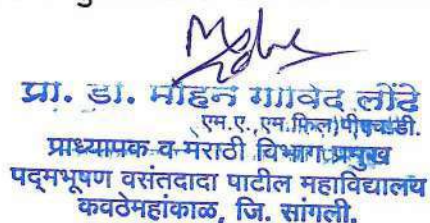 प्रा. डा. मोहन गोविंद लोंढे
एम.ए.,एम.फिल)पीएचडी.
प्राध्यापक व मराठी विभाग प्रमुख
पद्मभूषण वसंतदादा पाटील महाविद्यालय
कवठेमहांकाळ, जि. सांगली.